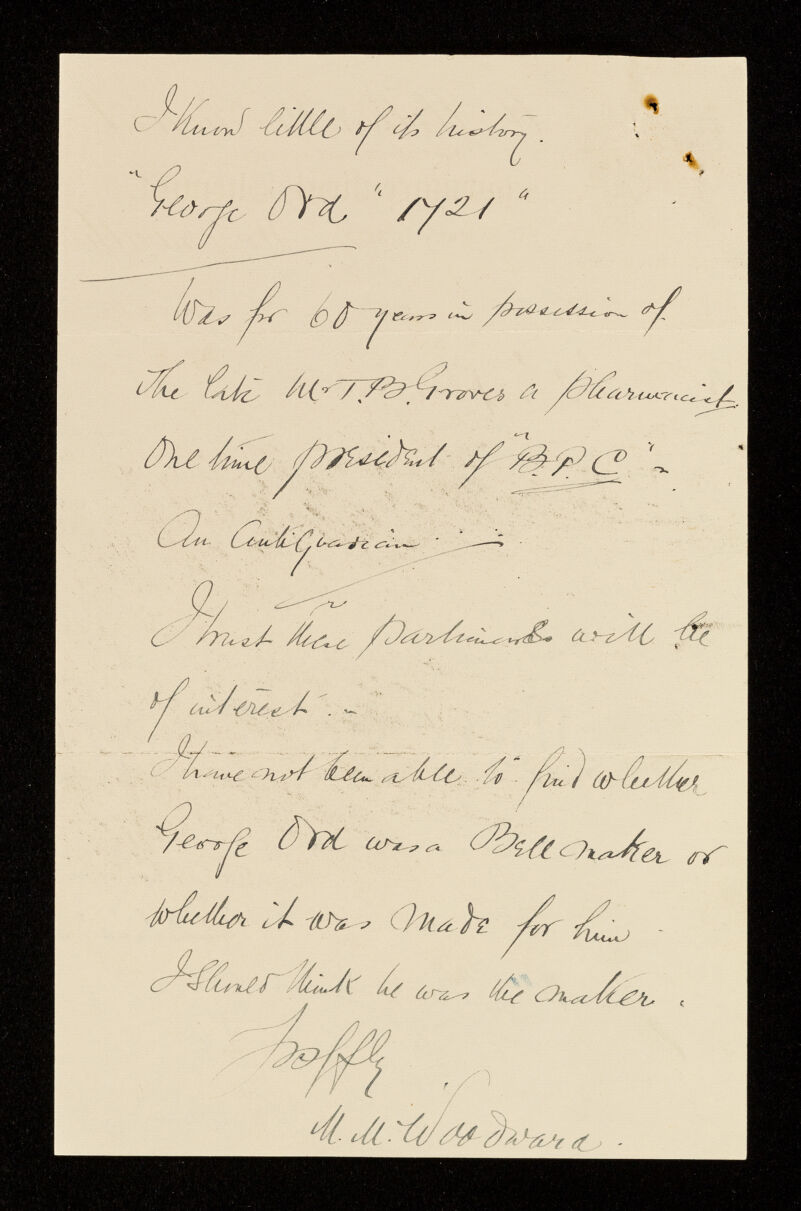 I Know little of its history.
"George Ord" "1721"
Was for 60 years in possession of
The late Mr T. B. Groves a pharmacist
One time president of "B. P. C" -
An Antiquarian
I trust these particulars will be
of interest. -
I have not been able to find whether
George Ord was a Bell maker or
whether it was Made for him
I Should think he was the maker.
M. M. Woodward.